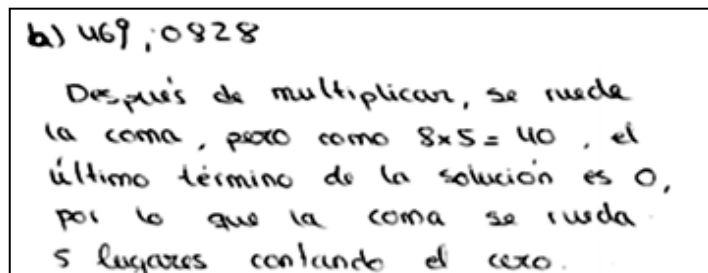 b) 469,0828
Después de multiplicar, se rueda
la coma, pero como 8x5 = 40, el
último término de la solución es 0,
por lo que la coma se rueda
5 lugares contando el cero.